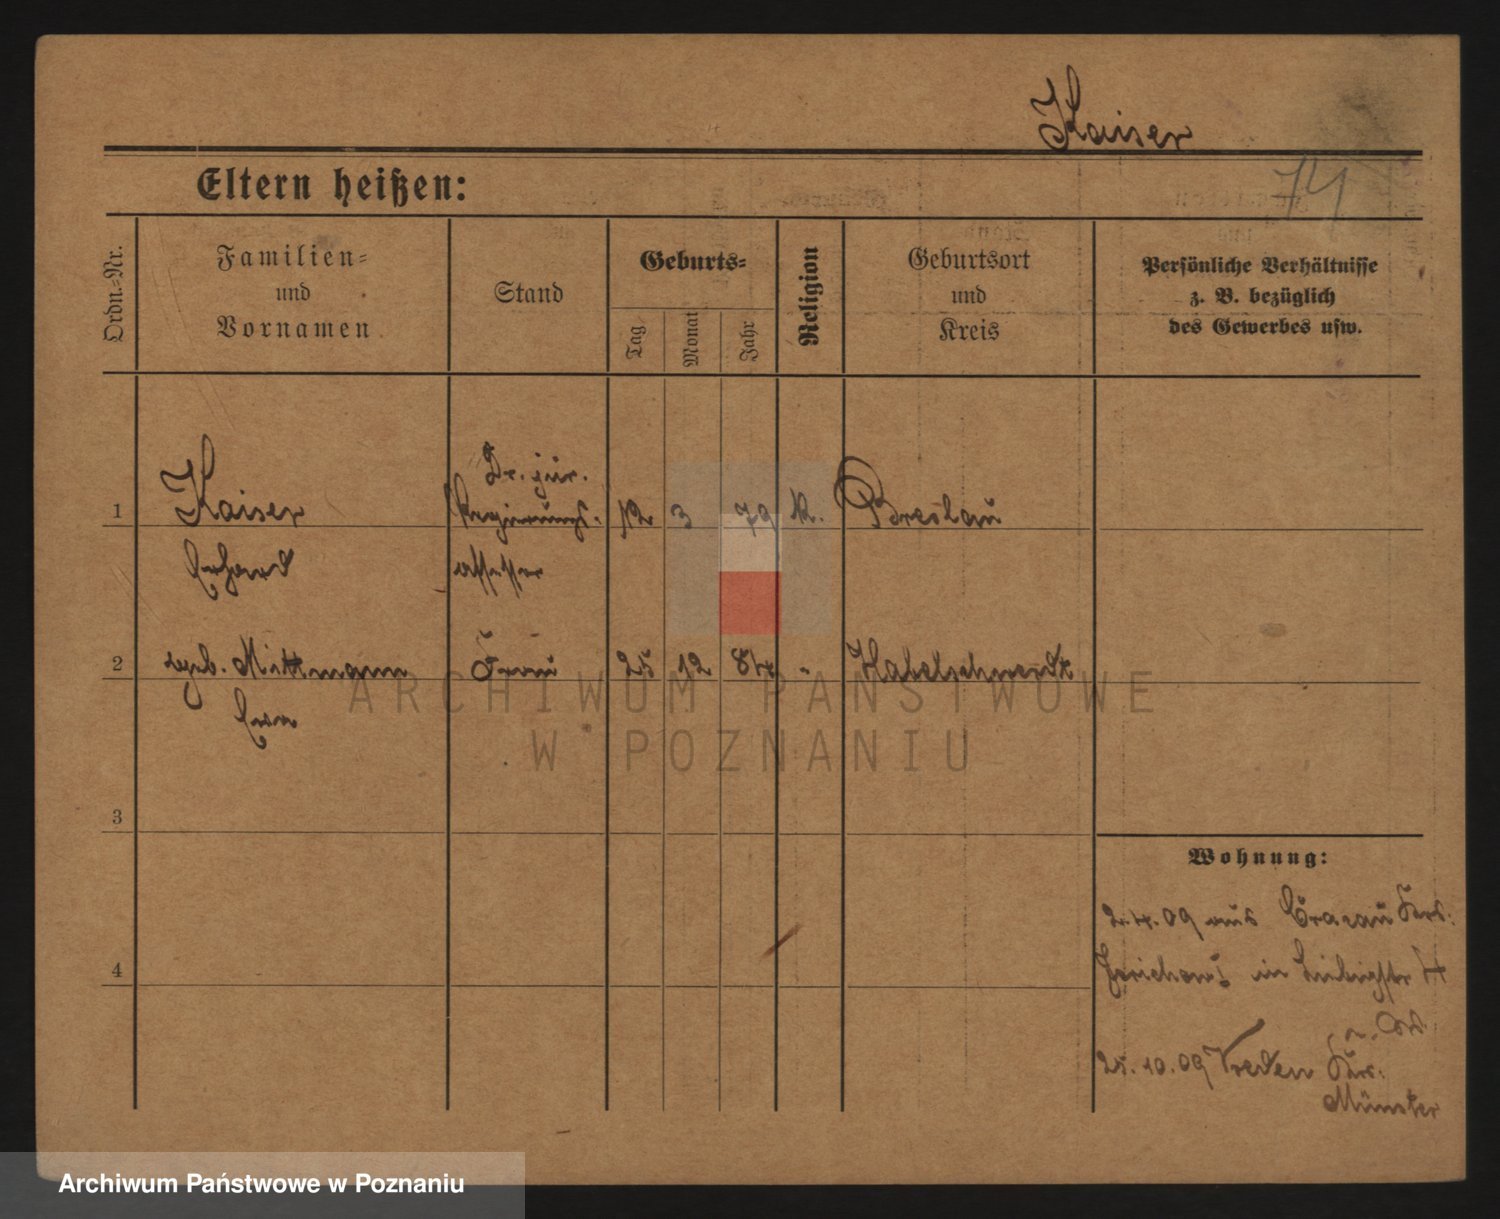 Kaiser
74
Eltern heißen:
Ordn.-Nr.
Familien-
und
Vornamen
Stand
Geburts-
Tag
Monat
Jahr
Religion
Geburtsort
und
Kreis
Persönliche Verhältnisse
z. B. bezüglich
des Gewerbes usw.
1
Kaiser
Erhard
Dr. jur.
Regierungs-
assessor
12 3 79 K. Breslau
2
geb. Mittmann
Frau
25 12 84 " Habelschwerdt
3
4
Wohnung:
2.4.09 aus Cracau Krs.
Jerichow I in Liebigstr 4
25.10.09 Vreden Krs.
Münster
ARCHIWUM PAŃSTWOWE
W POZNANIU
Archiwum Państwowe w Poznaniu